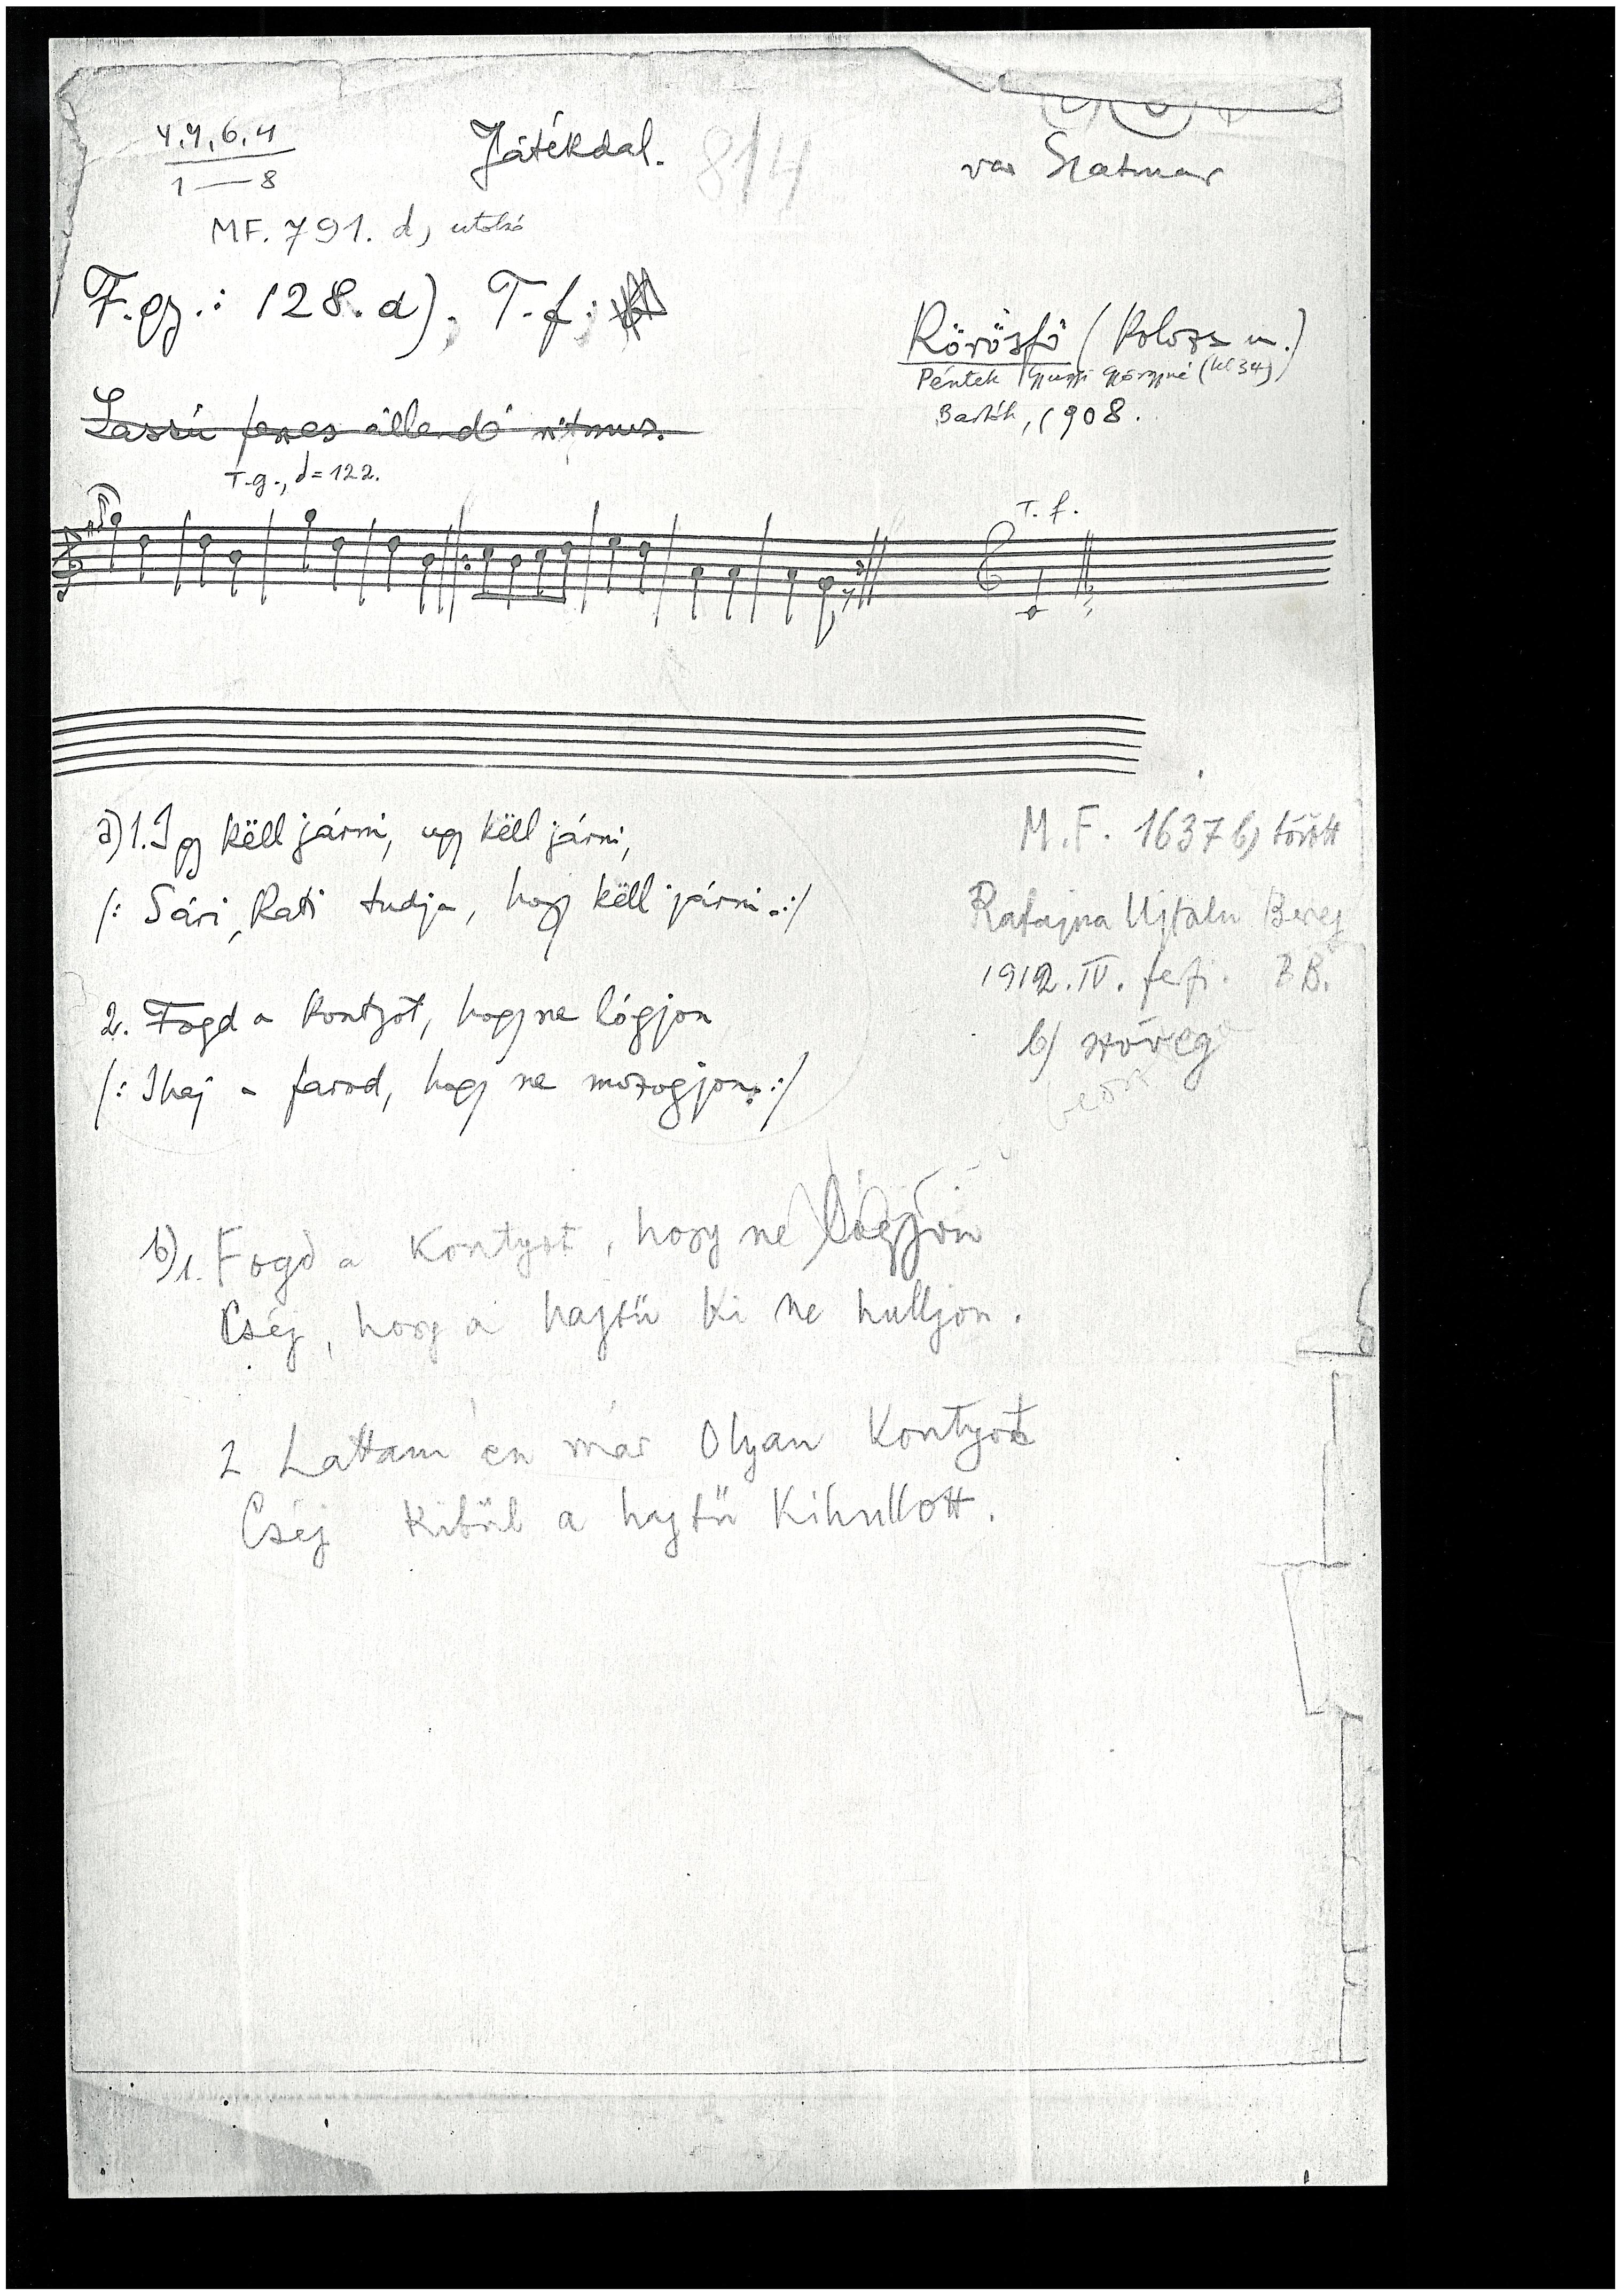 4,4,6,4
1—8
Játékdal.
814
var Szatmár
MF. 791. d) utolsó
F.gy.: 128. d). T.f.:
Körösfő (Kolozs m.)
Péntek Gyugyi Györgyné (kb 34)
Bartók, 1908.
Lassú feszes állandó ritmus.
T.g., = 122.
T. f.
a) 1. Igy këll járni, ugy këll járni,
/: Sári, Kati tudja, hogy këll járni. :/
2. Fogd a kontyot, hogy ne lógjon
/: Ihaj a farod, hogy ne mozogjon. :/
M.F. 1637 b) törött
Rafajna Ujfalu Bereg
1912. IV. férfi. B.B.
b) szöveg
b) 1. Fogd a Kontyot, hogy ne lógjon
Cséj, hogy a hajtü ki ne hulljon.
2 Láttam én már Olyan Kontyot
Cséj Kibül a hajtü Kihullott.